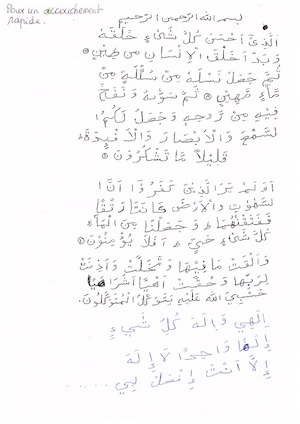 Pour un accouchement
rapide.
بسم الله الرحمن الرحيم
الَّذِىٓ اَحْسَنَ كُلَّ شَىْءٍ خَلَقَهُ
وَبَدَاَ خَلْقَ الْاِنْسَانِ مِنْ طِينٍ
ثُمَّ جَعَلَ نَسْلَهُ مِنْ سُلَٰلَةٍ مِنْ
مَّاءٍ مَّهِينٍ ثُمَّ سَوَّىٰهُ وَنَفَخَ
فِيهِ مِنْ رُّوحِهِ وَجَعَلَ لَكُمُ
السَّمْعَ وَالْاَبْصَٰرَ وَالْاَفْـِٕدَةَ
قَلِيلًا مَّا تَشْكُرُونَ
اَوَلَمْ يَرَ الَّذِينَ كَفَرُوٓا اَنَّ
السَّمَٰوَٰتِ وَالْاَرْضَ كَانَتَا رَتْقًا
فَفَتَقْنَٰهُمَا وَجَعَلْنَا مِنَ الْمَاءِ
كُلَّ شَىْءٍ حَيٍّ اَفَلَا يُؤْمِنُونَ
وَاَلْقَتْ مَا فِيهَا وَتَخَلَّتْ وَاَذِنَتْ
لِرَبِّهَا وَحُقَّتْ اَهْيَا شَرَاهِيَا
حَسْبِيَ اللهُ عَلَيْهِ يَتَوَكَّلُ الْمُتَوَكِّلُونَ.
اِلَهِي وَاِلَهَ كُلِّ شَيْءٍ
اِلَهًا وَاحِدًا لَا اِلَهَ
اِلَّا اَنْتَ اِفْعَلْ لِي ......